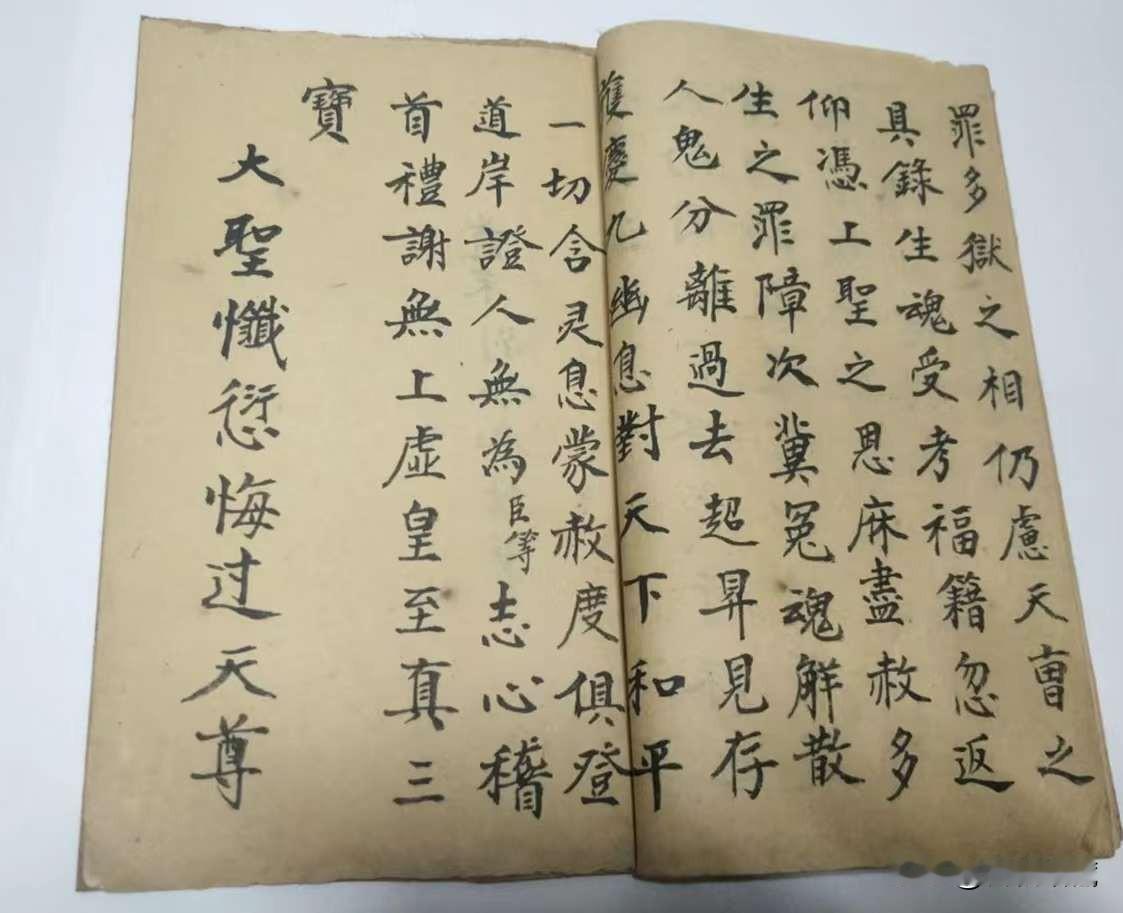 罪多獄之相仍慮天曹之
具錄生魂受考福籍忽返
仰憑上聖之恩庥盡赦多
生之罪障次冀冤魂解散
人鬼分離過去超昇見存
獲慶九幽息對天下和平
一切含灵息蒙赦度俱登
道岸證人無為臣等志心稽
首禮謝無上虛皇至真三
寶
大聖懺愆悔过天尊